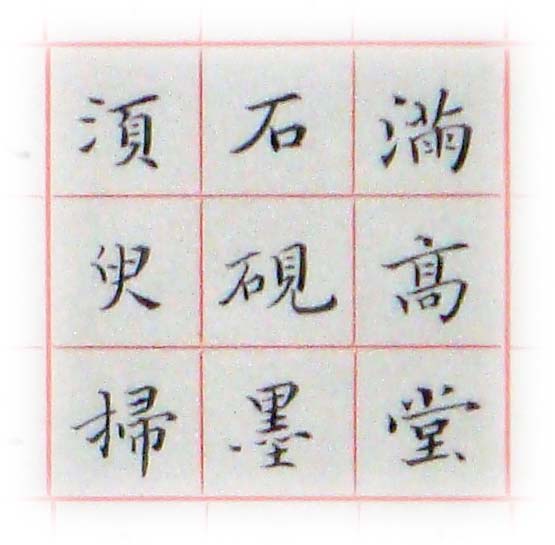 滿髙堂
石硯墨
須臾掃